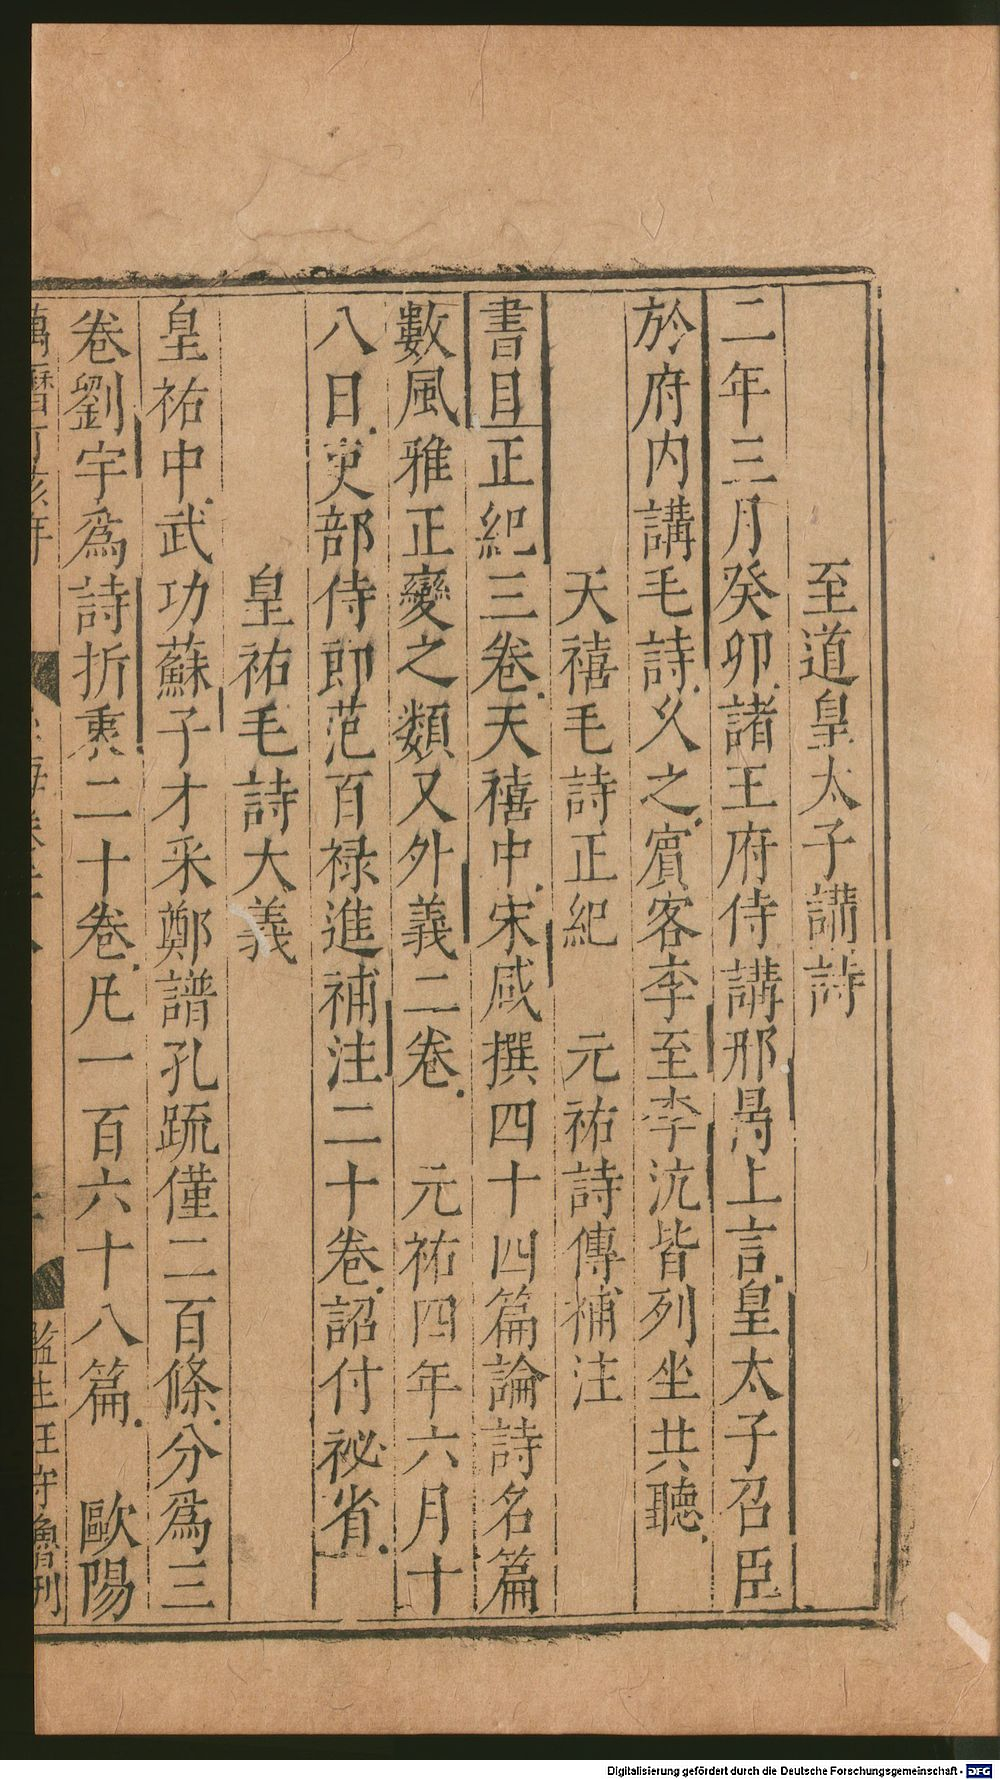 至道皇太子講詩
二年三月癸卯諸王府侍講邢昺上言皇太子召臣
於府内講毛詩久之賓客李至李沆皆列坐共聽
天禧毛詩正紀 元祐詩傳補注
書目正紀三卷天禧中宋咸撰四十四篇論詩名篇
數風雅正變之類又外義二卷 元祐四年六月十
八日吏部侍郎范百禄進補注二十卷詔付祕省
皇祐毛詩大義
皇祐中武功蘇子才采鄭譜孔䟽僅二百條分爲三
卷劉宇爲詩折衷二十卷凡一百六十八篇 歐陽
Digitalisierung gefördert durch die Deutsche Forschungsgemeinschaft - DFG